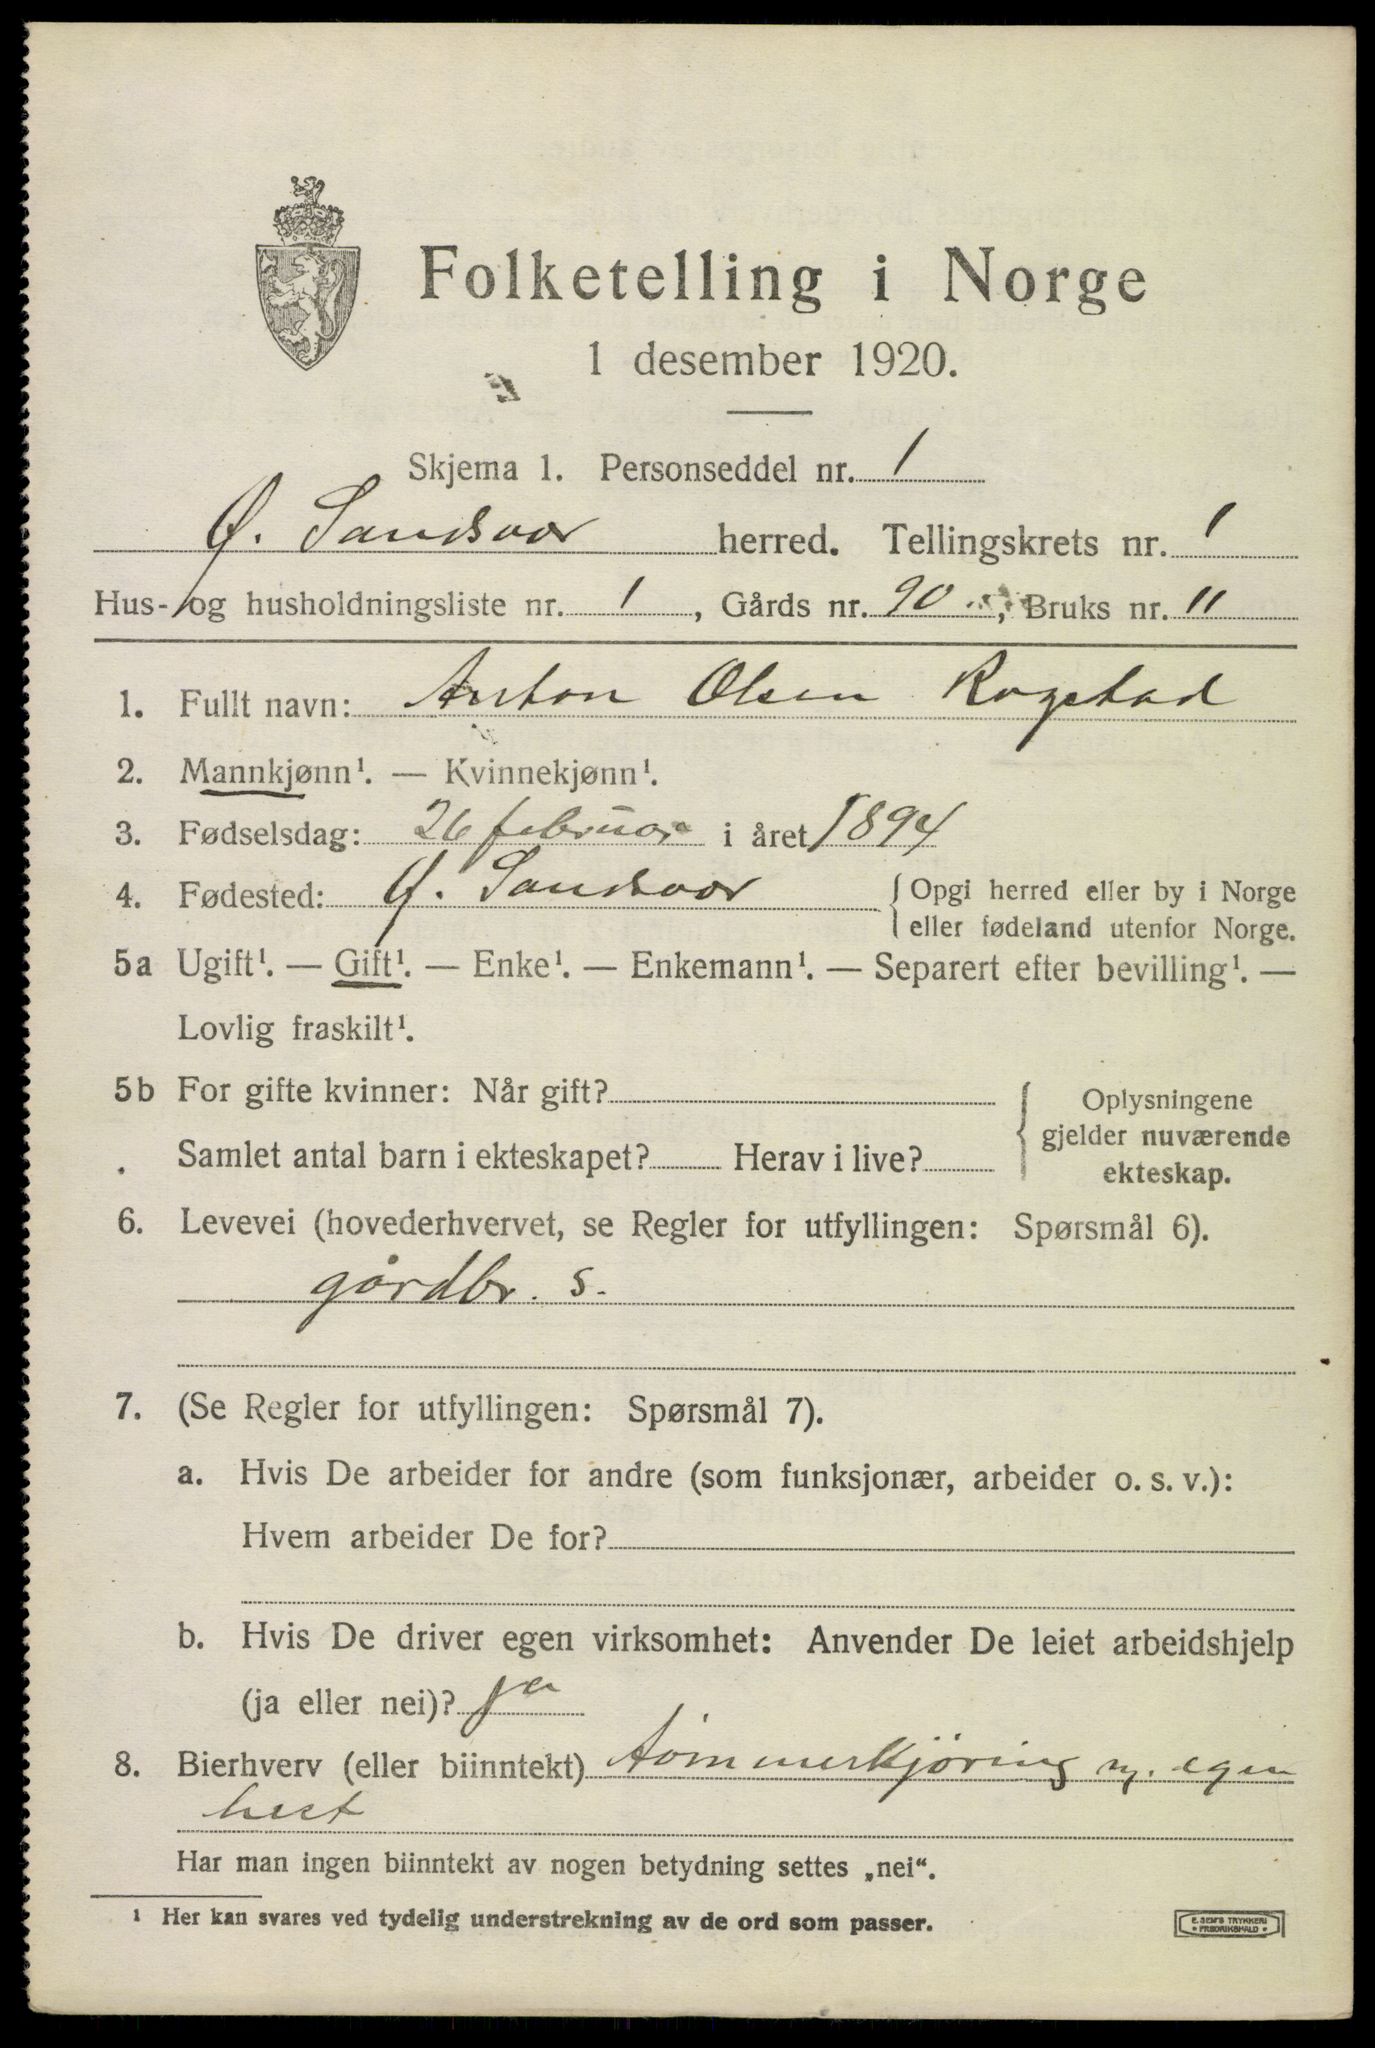 Folketelling i Norge
1 desember 1920.
Skjema 1. Personseddel nr. 1
Ø. Sandsvær herred. Tellingskrets nr. 1
Hus- og husholdningsliste nr. 1, Gårds nr. 90, Bruks nr. 11
1. Fullt navn: Anton Olsen Rogstad
2. Mannkjønn¹. — Kvinnekjønn¹.
3. Fødselsdag: 26 februar i året 1894
4. Fødested: Ø. Sandsvær { Opgi herred eller by i Norge
eller fødeland utenfor Norge.
5a Ugift¹. — Gift¹. — Enke¹. — Enkemann¹. — Separert efter bevilling¹. —
Lovlig fraskilt¹.
5b For gifte kvinner: Når gift?
Samlet antal barn i ekteskapet? Herav i live?
{ Oplysningene
gjelder nuværende
ekteskap.
6. Levevei (hovederhvervet, se Regler for utfyllingen: Spørsmål 6).
gårdbr. s.
7. (Se Regler for utfyllingen: Spørsmål 7).
a. Hvis De arbeider for andre (som funksjonær, arbeider o. s. v.):
Hvem arbeider De for?
b. Hvis De driver egen virksomhet: Anvender De leiet arbeidshjelp
(ja eller nei)? ja
8. Bierhverv (eller biinntekt) Tömmerkjöring m. egen
hest
Har man ingen biinntekt av nogen betydning settes „nei“.
¹ Her kan svares ved tydelig understrekning av de ord som passer.
E. SEM'S TRYKKERI
* FREDRIKSHALD *